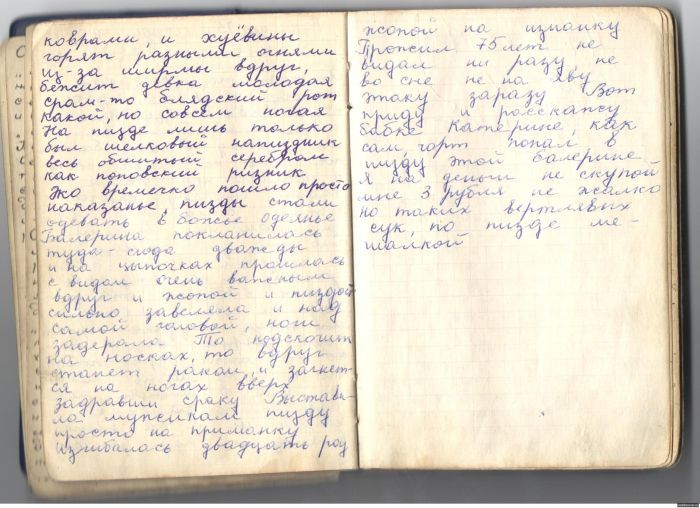 коврами, и хуёвины
горят разными огнями
из-за ширмы вдруг,
бежит девка молодая
срам-то блядский рот
какой, но совсем нагая
На пизде лишь только
был шелковый напиздник
весь обшитый серебром
как поповский ризник
Эко времечко пошло просто
наказанье, пизды стали
одевать в божье одеянье
Балерина покланилась
туда-сюда дважды
и на цыпочках прошлась
с видом очень важным
вдруг и жопой и пиздой
сильно завеляла и над
самой головой, ноги
задерала То подскочит
на носках, то вдруг
станет раком, и загнет-
ся на ногах вверх
задравши сраку Выстави-
ла мужикам пизду
просто на приманку
изгибалась двадцать раз
жопой на изнанку
Прожил 75 лет не
видал ни разу, не
во сне не на яву
этаку заразу Вот
приду и расскажу
бабке Катерине, как
сам чорт попал в
пизду этой балерине
Я на деньги не скупой
мне 3 рубля не жалко
но таких вертлявых
сук, по пизде ме-
шалкой